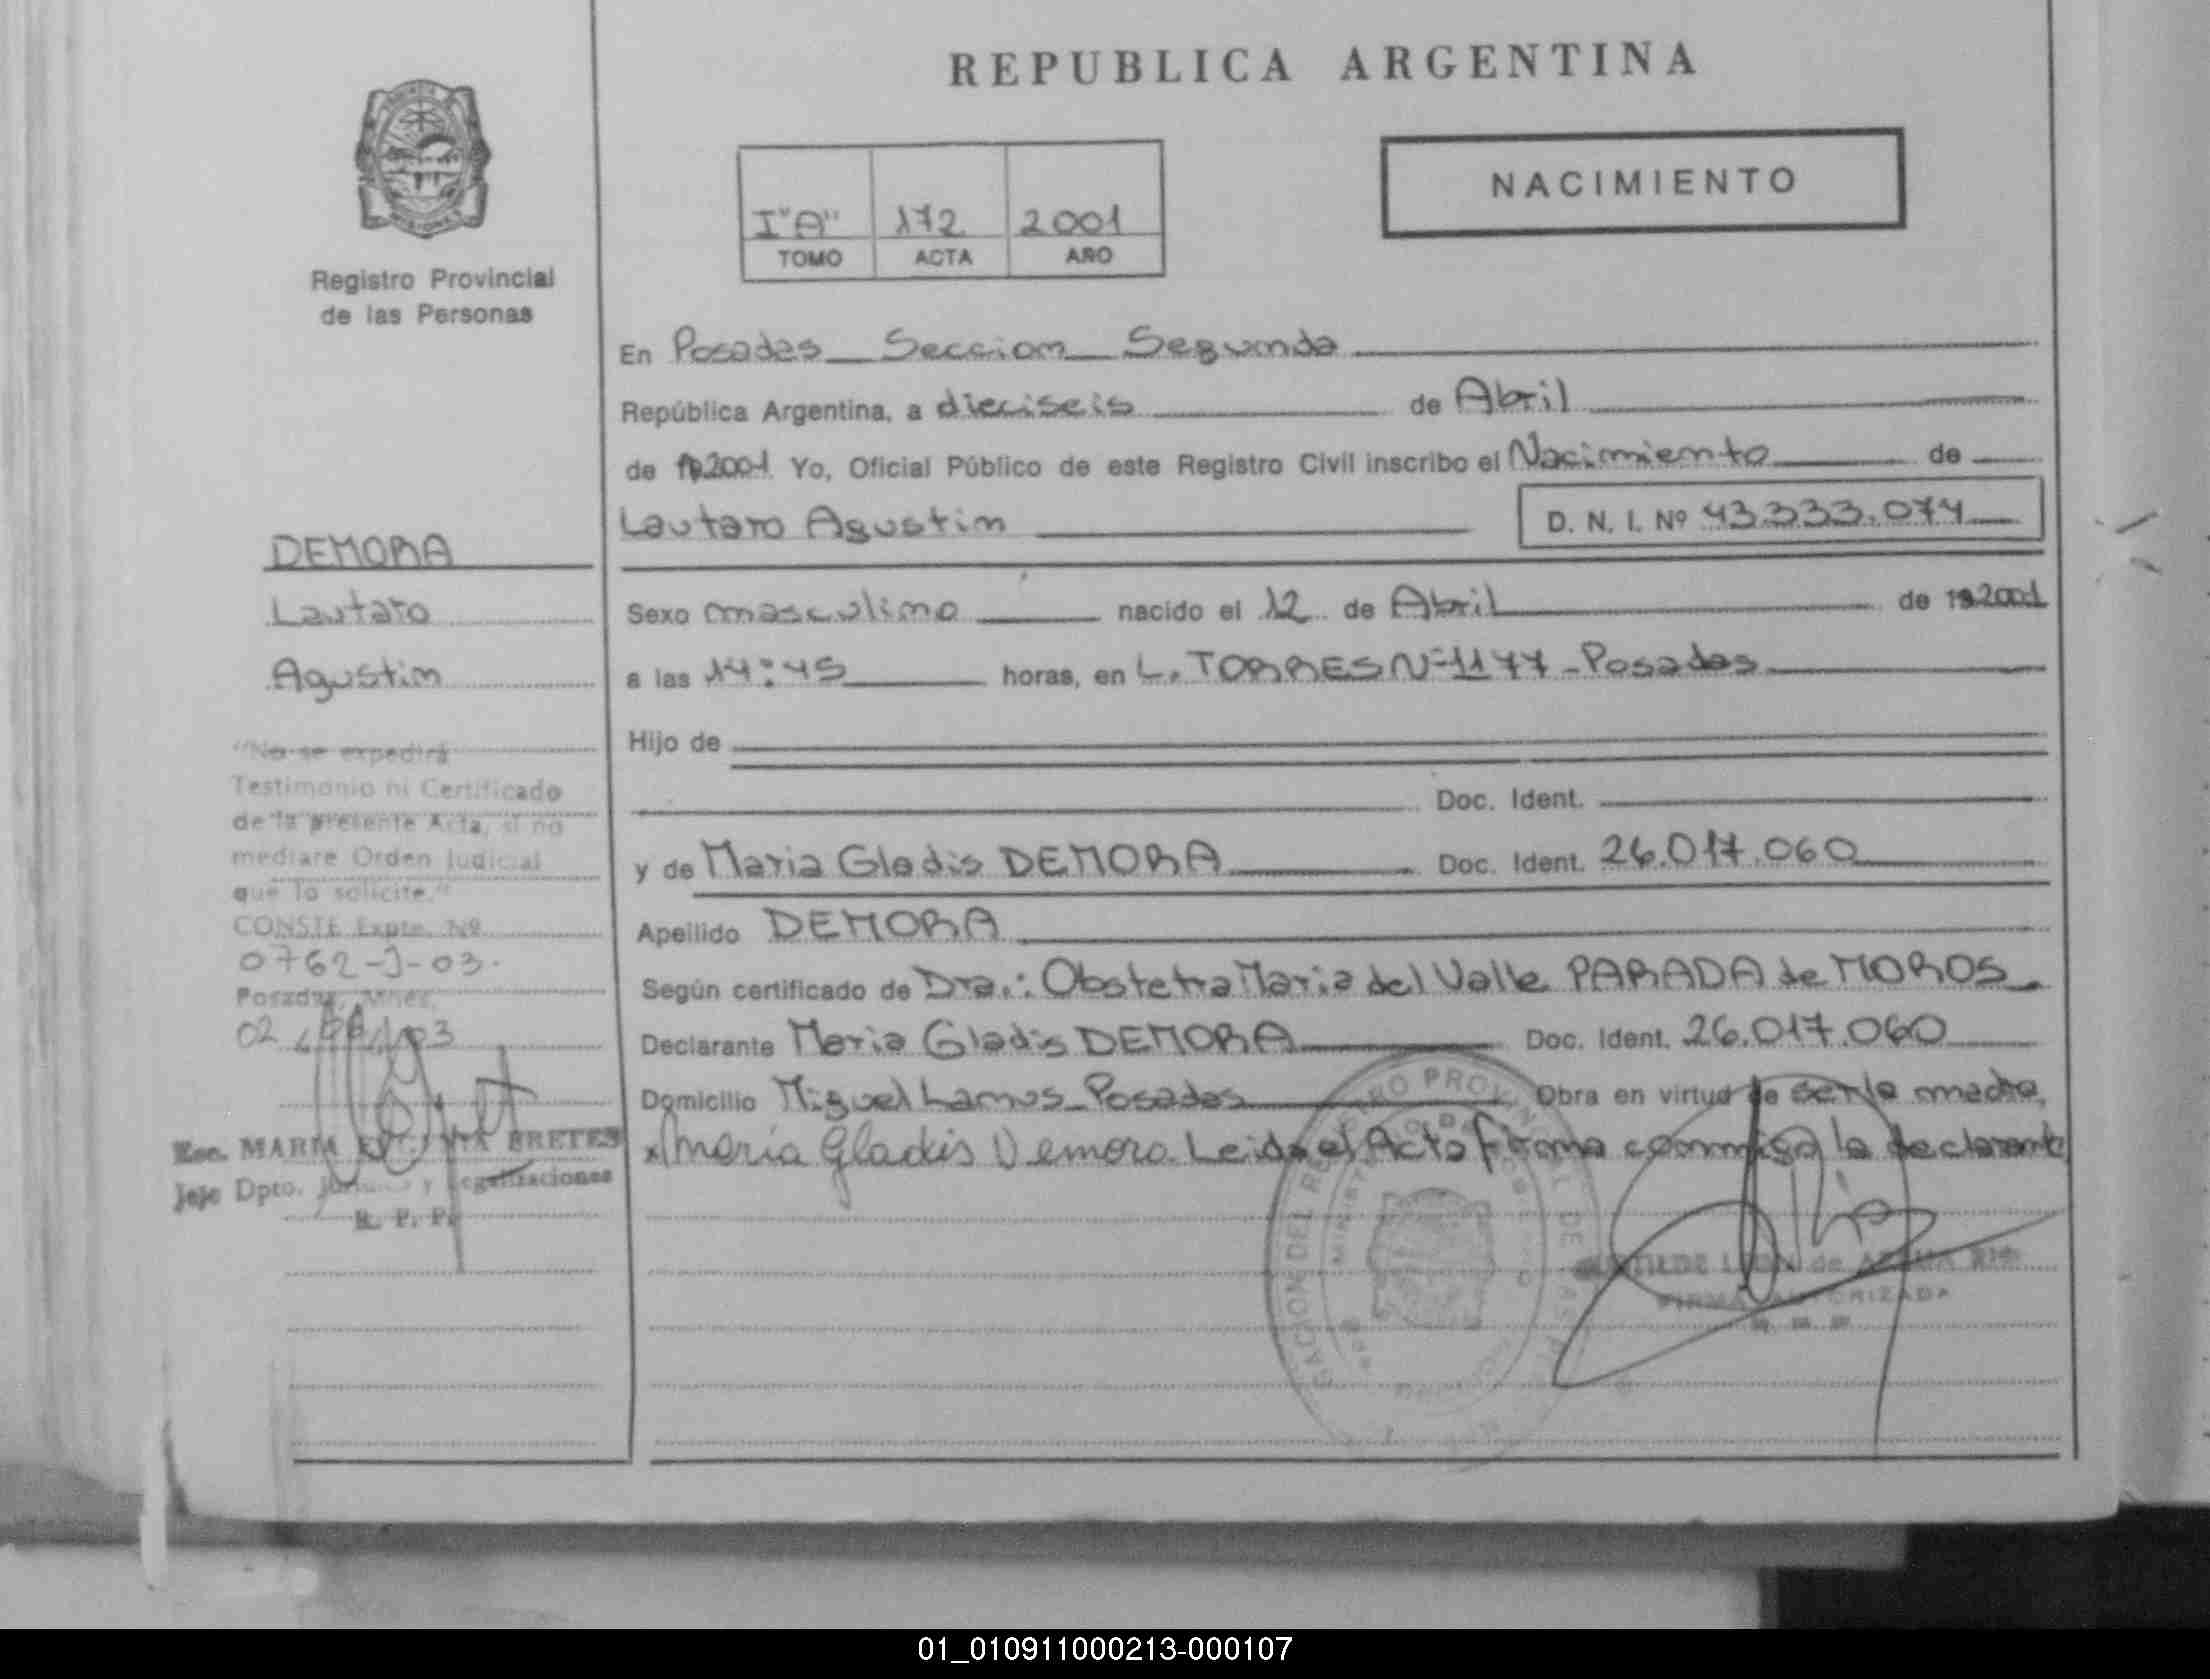 REPUBLICA ARGENTINA
NACIMIENTO
I"A" 172 2001
TOMO ACTA AÑO
Registro Provincial
de las Personas
En Posadas Seccion Segunda
República Argentina, a dieciseis de Abril
de 192001 Yo, Oficial Público de este Registro Civil inscribo el Nacimiento de
Lautaro Agustin D. N. I. Nº 43.333.074
DEMORA
Lautaro
Agustin
Sexo masculino nacido el 12 de Abril de 192001
a las 14:45 horas, en L. TORRES Nº 1177 - Posadas
Hijo de
Doc. Ident.
y de Maria Gladis DEMORA Doc. Ident. 26.017.060
Apellido DEMORA
Según certificado de Dra.: Obstetra Maria del Valle PARADA de MOROS
Declarante Maria Gladis DEMORA Doc. Ident. 26.017.060
Domicilio Miguel Lamus Posadas Obra en virtud de ser la madre,
x María Gladis Demora Leida el Acta firma conmigo la declarante
"No se expedirá
Testimonio ni Certificado
de la presente Acta, si no
mediare Orden Judicial
que lo solicite."
CONSTE Expte. Nº
0762-J-03.
Posadas, Mnes,
02
Esc. MARIA BRETES
Jefe Dpto. y Legalizaciones
R. P. P.
REGISTRO PROVINCIAL DE LAS
LEON de
FIRMA AUTORIZADA
01_010911000213-000107